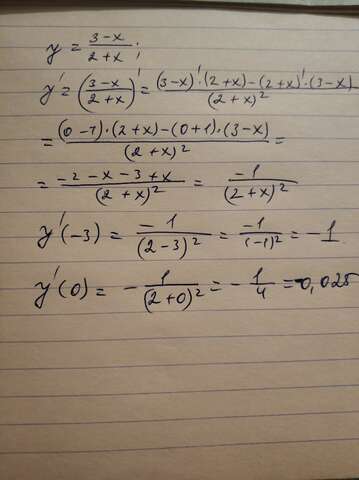 y = \frac{3-x}{2+x};
y' = \left(\frac{3-x}{2+x}\right)' = \frac{(3-x)' \cdot (2+x) - (2+x)' \cdot (3-x)}{(2+x)^2}
= \frac{(0-1) \cdot (2+x) - (0+1) \cdot (3-x)}{(2+x)^2} =
= \frac{-2-x-3+x}{(2+x)^2} = \frac{-1}{(2+x)^2}
y'(-3) = \frac{-1}{(2-3)^2} = \frac{-1}{(-1)^2} = -1
y'(0) = -\frac{1}{(2+0)^2} = -\frac{1}{4} = -0,025